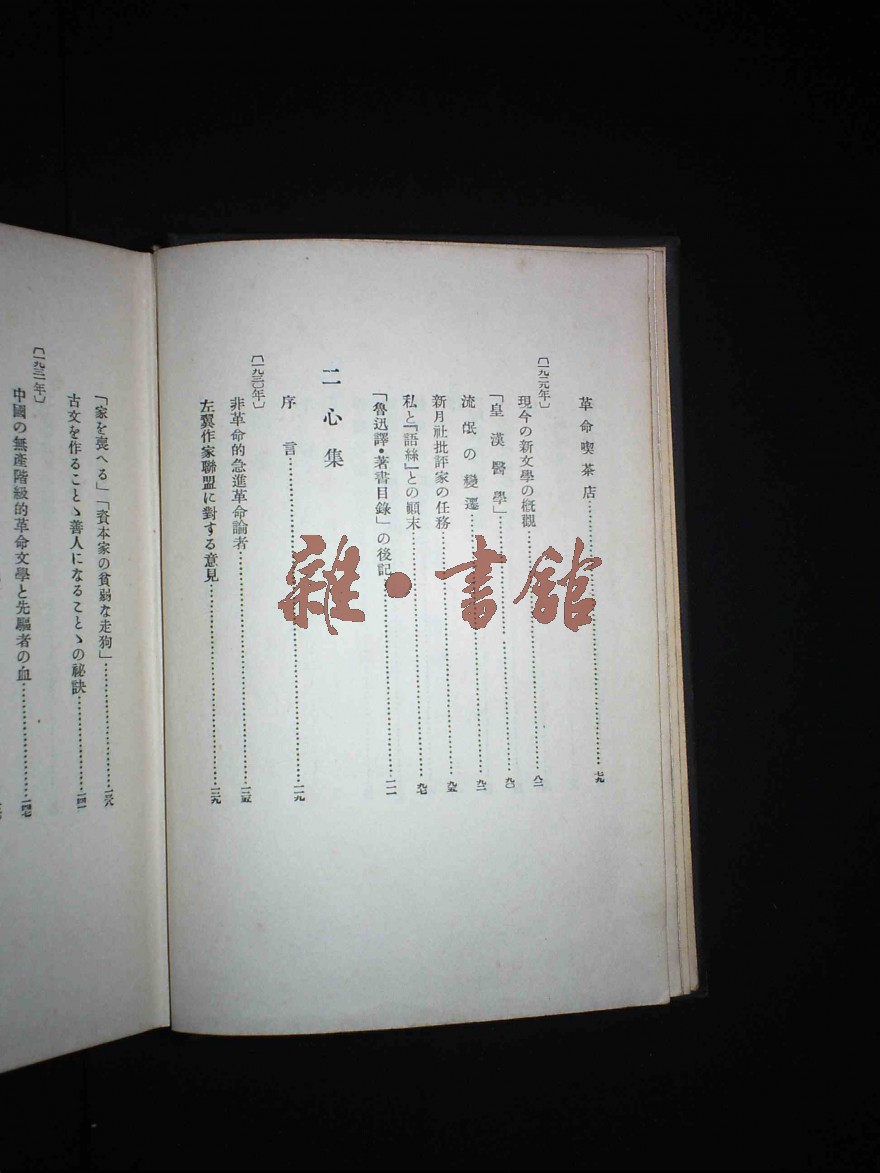 革命喫茶店……七九
〔一九二九年〕
現今の新文學の概觀……八二
「皇漢醫學」……九〇
流氓の變遷……九二
新月社批評家の任務……九五
私と『語絲』との顚末……九七
「魯迅譯・著書目錄」の後記……一一一
二心集
序言……一一九
〔一九三〇年〕
非革命的急進革命論者……一二五
左翼作家聯盟に對する意見……一二九
「家を喪へる」「資本家の貧弱な走狗」……一三八
古文を作ることゝ善人になることゝの祕訣……一四一
〔一九三一年〕
中國の無產階級的革命文學と先驅者の血……一四七
雜・書館